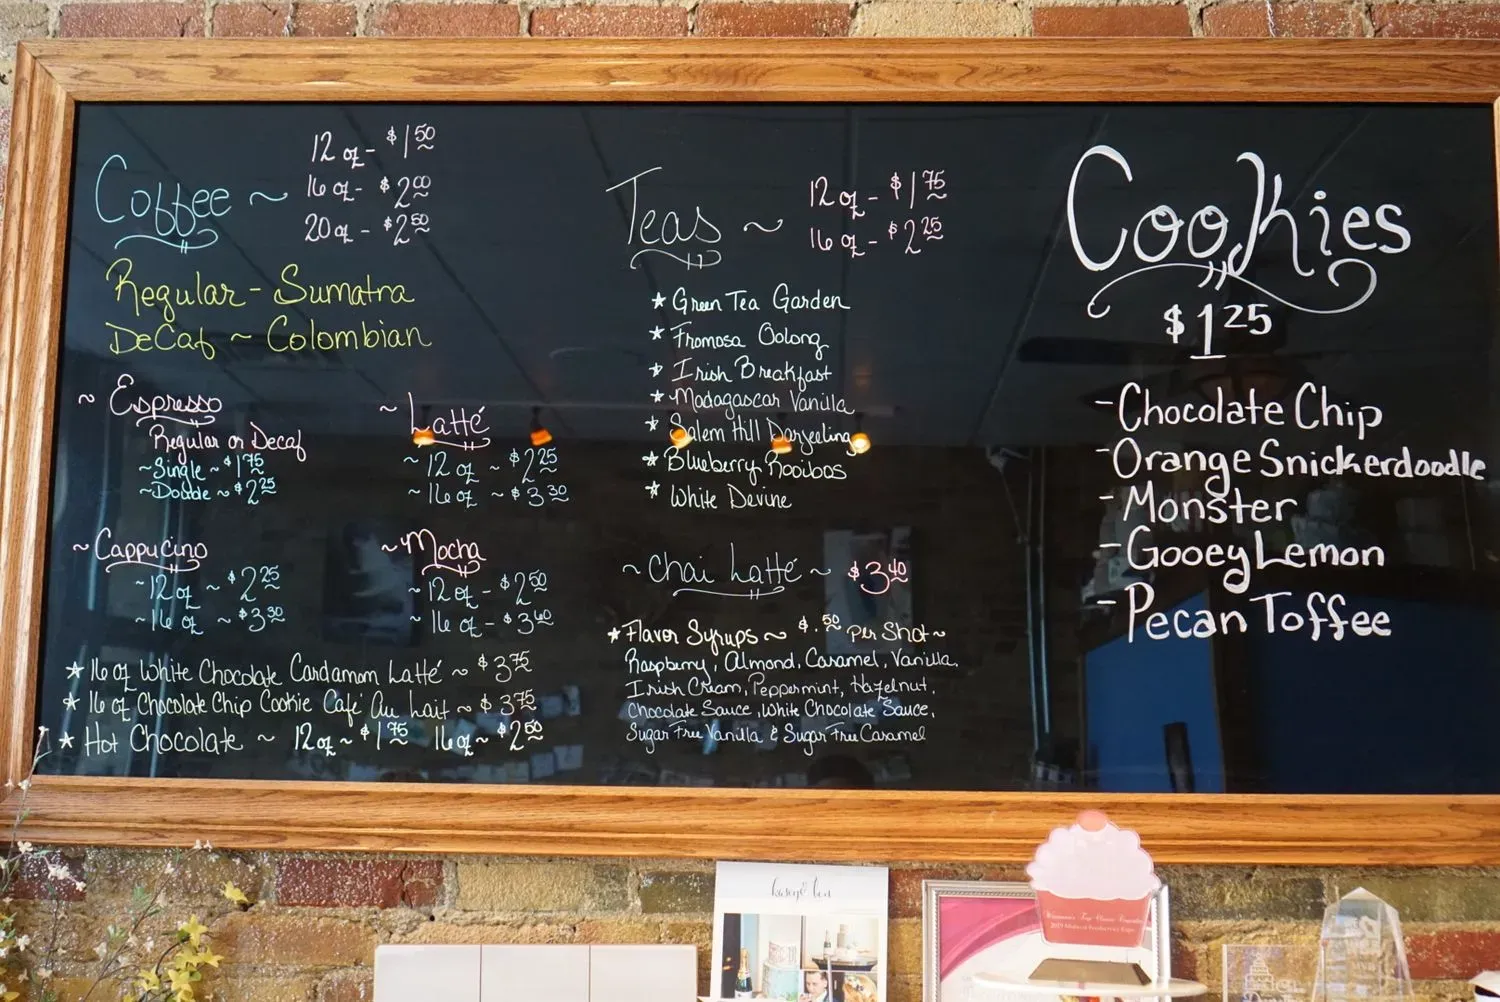 Coffee ~
12 oz - $1.50
16 oz - $2.00
20 oz - $2.50
Regular - Sumatra
DeCaf ~ Colombian
~ Espresso
Regular or Decaf
~ Single ~ $1.75
~ Double ~ $2.25
~ Latté
~ 12 oz ~ $2.25
~ 16 oz ~ $3.30
~ Cappucino
~ 12 oz ~ $2.25
~ 16 oz ~ $3.30
~ Mocha
~ 12 oz - $2.50
~ 16 oz - $3.60
★ 16 oz White Chocolate Cardamom Latté ~ $3.75
★ 16 oz Chocolate Chip Cookie Café Au Lait ~ $3.75
★ Hot Chocolate ~ 12 oz ~ $1.75 16 oz ~ $2.50
Teas ~
12 oz - $1.75
16 oz - $2.25
★ Green Tea Garden
★ Fromosa Oolong
★ Irish Breakfast
★ Madagascar Vanilla
★ Salem Hill Darjeeling
★ Blueberry Rooibos
★ White Devine
~ Chai Latté ~ $3.40
★ Flavor Syrups ~ $.50 per Shot ~
Raspberry, Almond, Caramel, Vanilla,
Irish Cream, Peppermint, Hazelnut,
Chocolate Sauce, White Chocolate Sauce,
Sugar Free Vanilla & Sugar Free Caramel
Cookies
$1.25
- Chocolate Chip
- Orange Snickerdoodle
- Monster
- Gooey Lemon
- Pecan Toffee